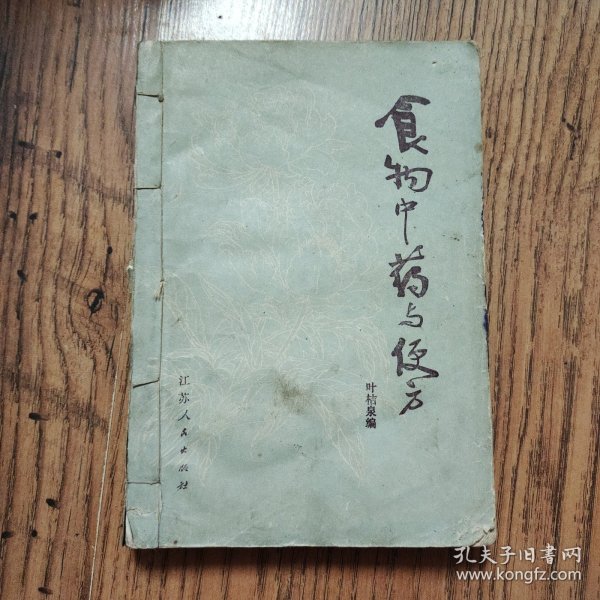 食物中药与便方
叶桔泉编
江苏人民出版社
孔夫子旧书网
www.kongfz.com